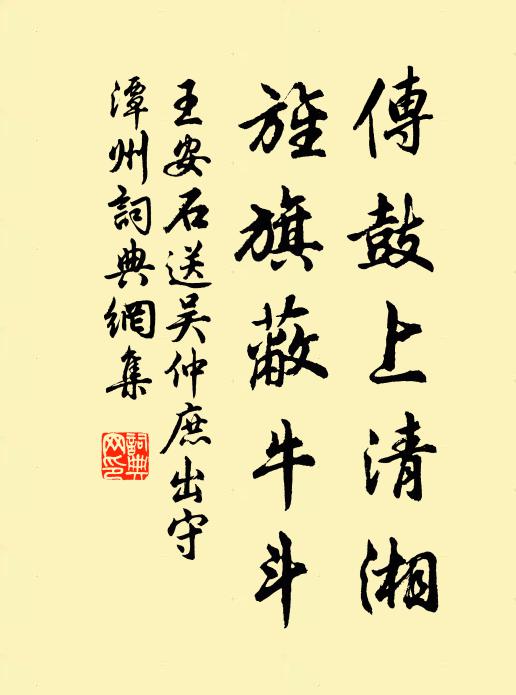 傳鼓上清湘
旌旗蔽牛斗
王安石送吴仲庶出守
潭州詞典網集
詞典网印